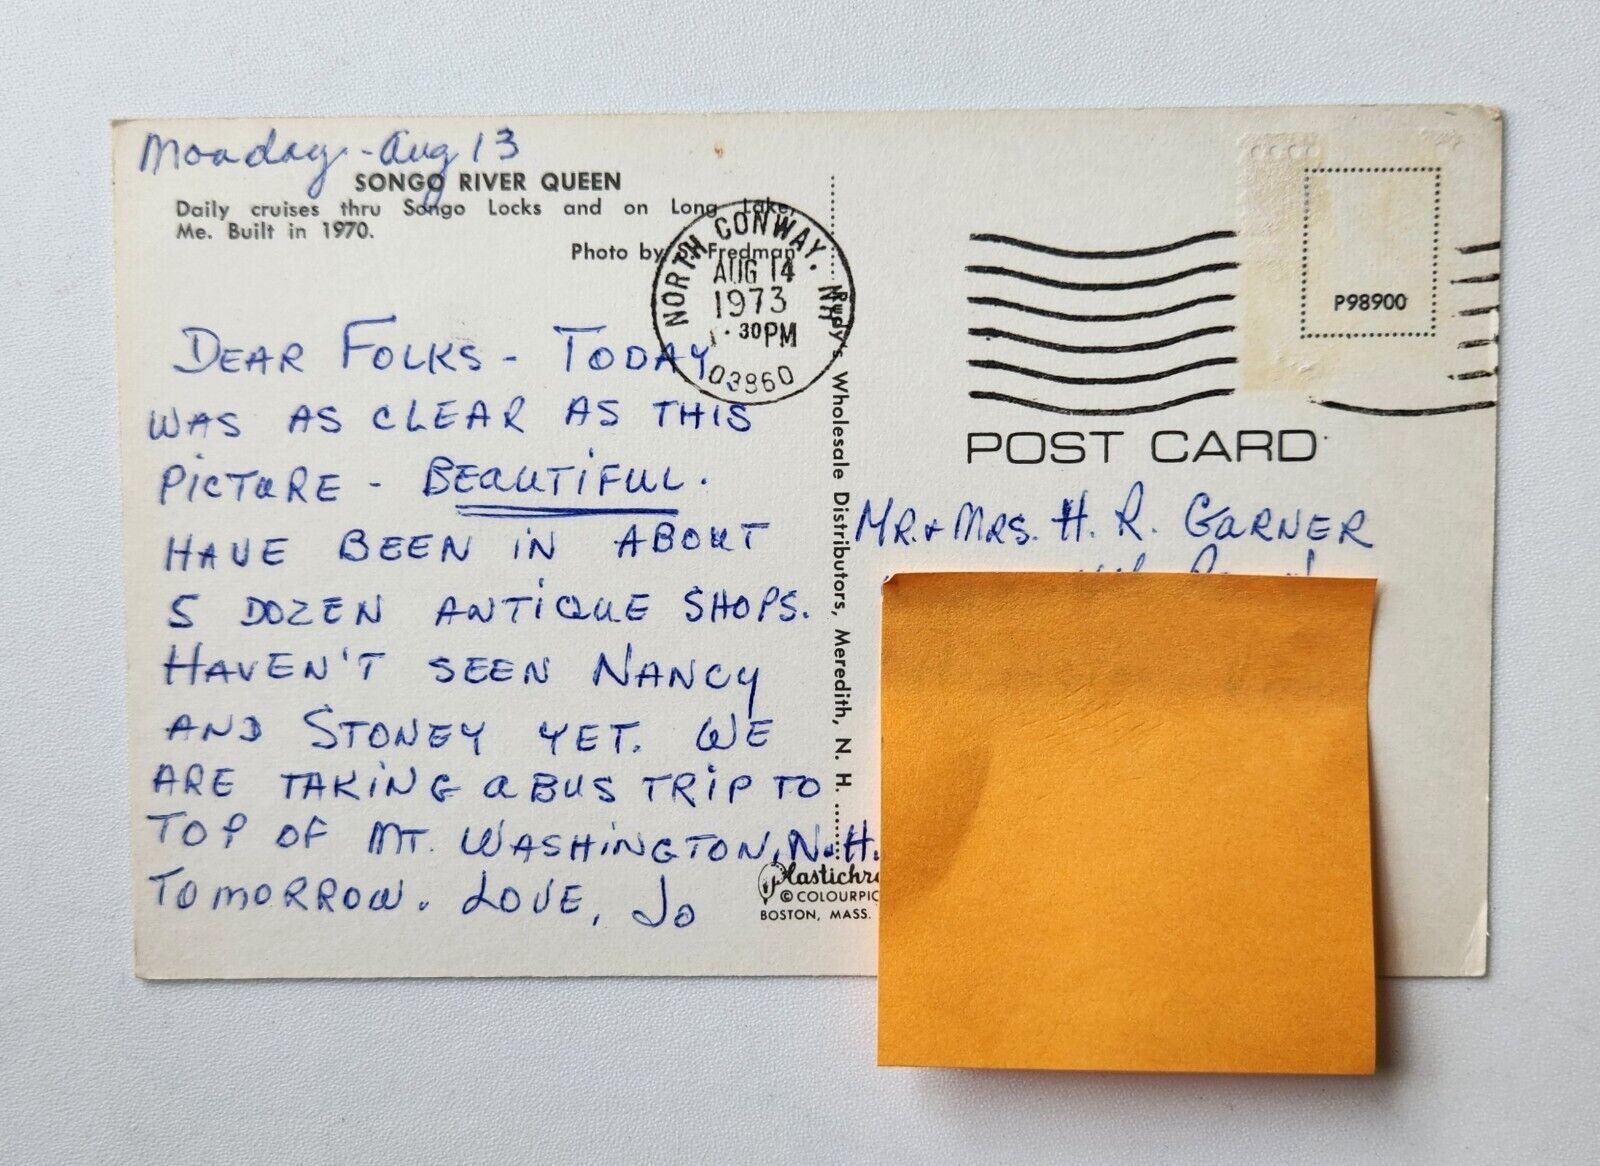 Monday - Aug 13
SONGO RIVER QUEEN
Daily cruises thru Songo Locks and on Long Lake,
Me. Built in 1970.
Photo by S. Fredman
NORTH CONWAY, NH
AUG 14
1973
30PM
03860
DEAR FOLKS - TODAY
WAS AS CLEAR AS THIS
PICTURE - BEAUTIFUL.
HAVE BEEN IN ABOUT
5 DOZEN ANTIQUE SHOPS.
HAVEN'T SEEN NANCY
AND STONEY YET. WE
ARE TAKING A BUS TRIP TO
TOP OF MT. WASHINGTON, N.H.
TOMORROW. LOVE, JO
Rudy's Wholesale Distributors, Meredith, N. H.
Plastichr
© COLOURPIC
BOSTON, MASS.
P98900
POST CARD
MR. + MRS. H. R. GARNER